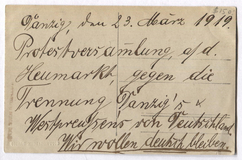 Danzig, den 23. März 1919.
Protestversamlung, a/d.
Heumarkt, gegen die
Trennung Danzig's u
Westpreußens von Deutschland.
Wir wollen deutsch bleiben.